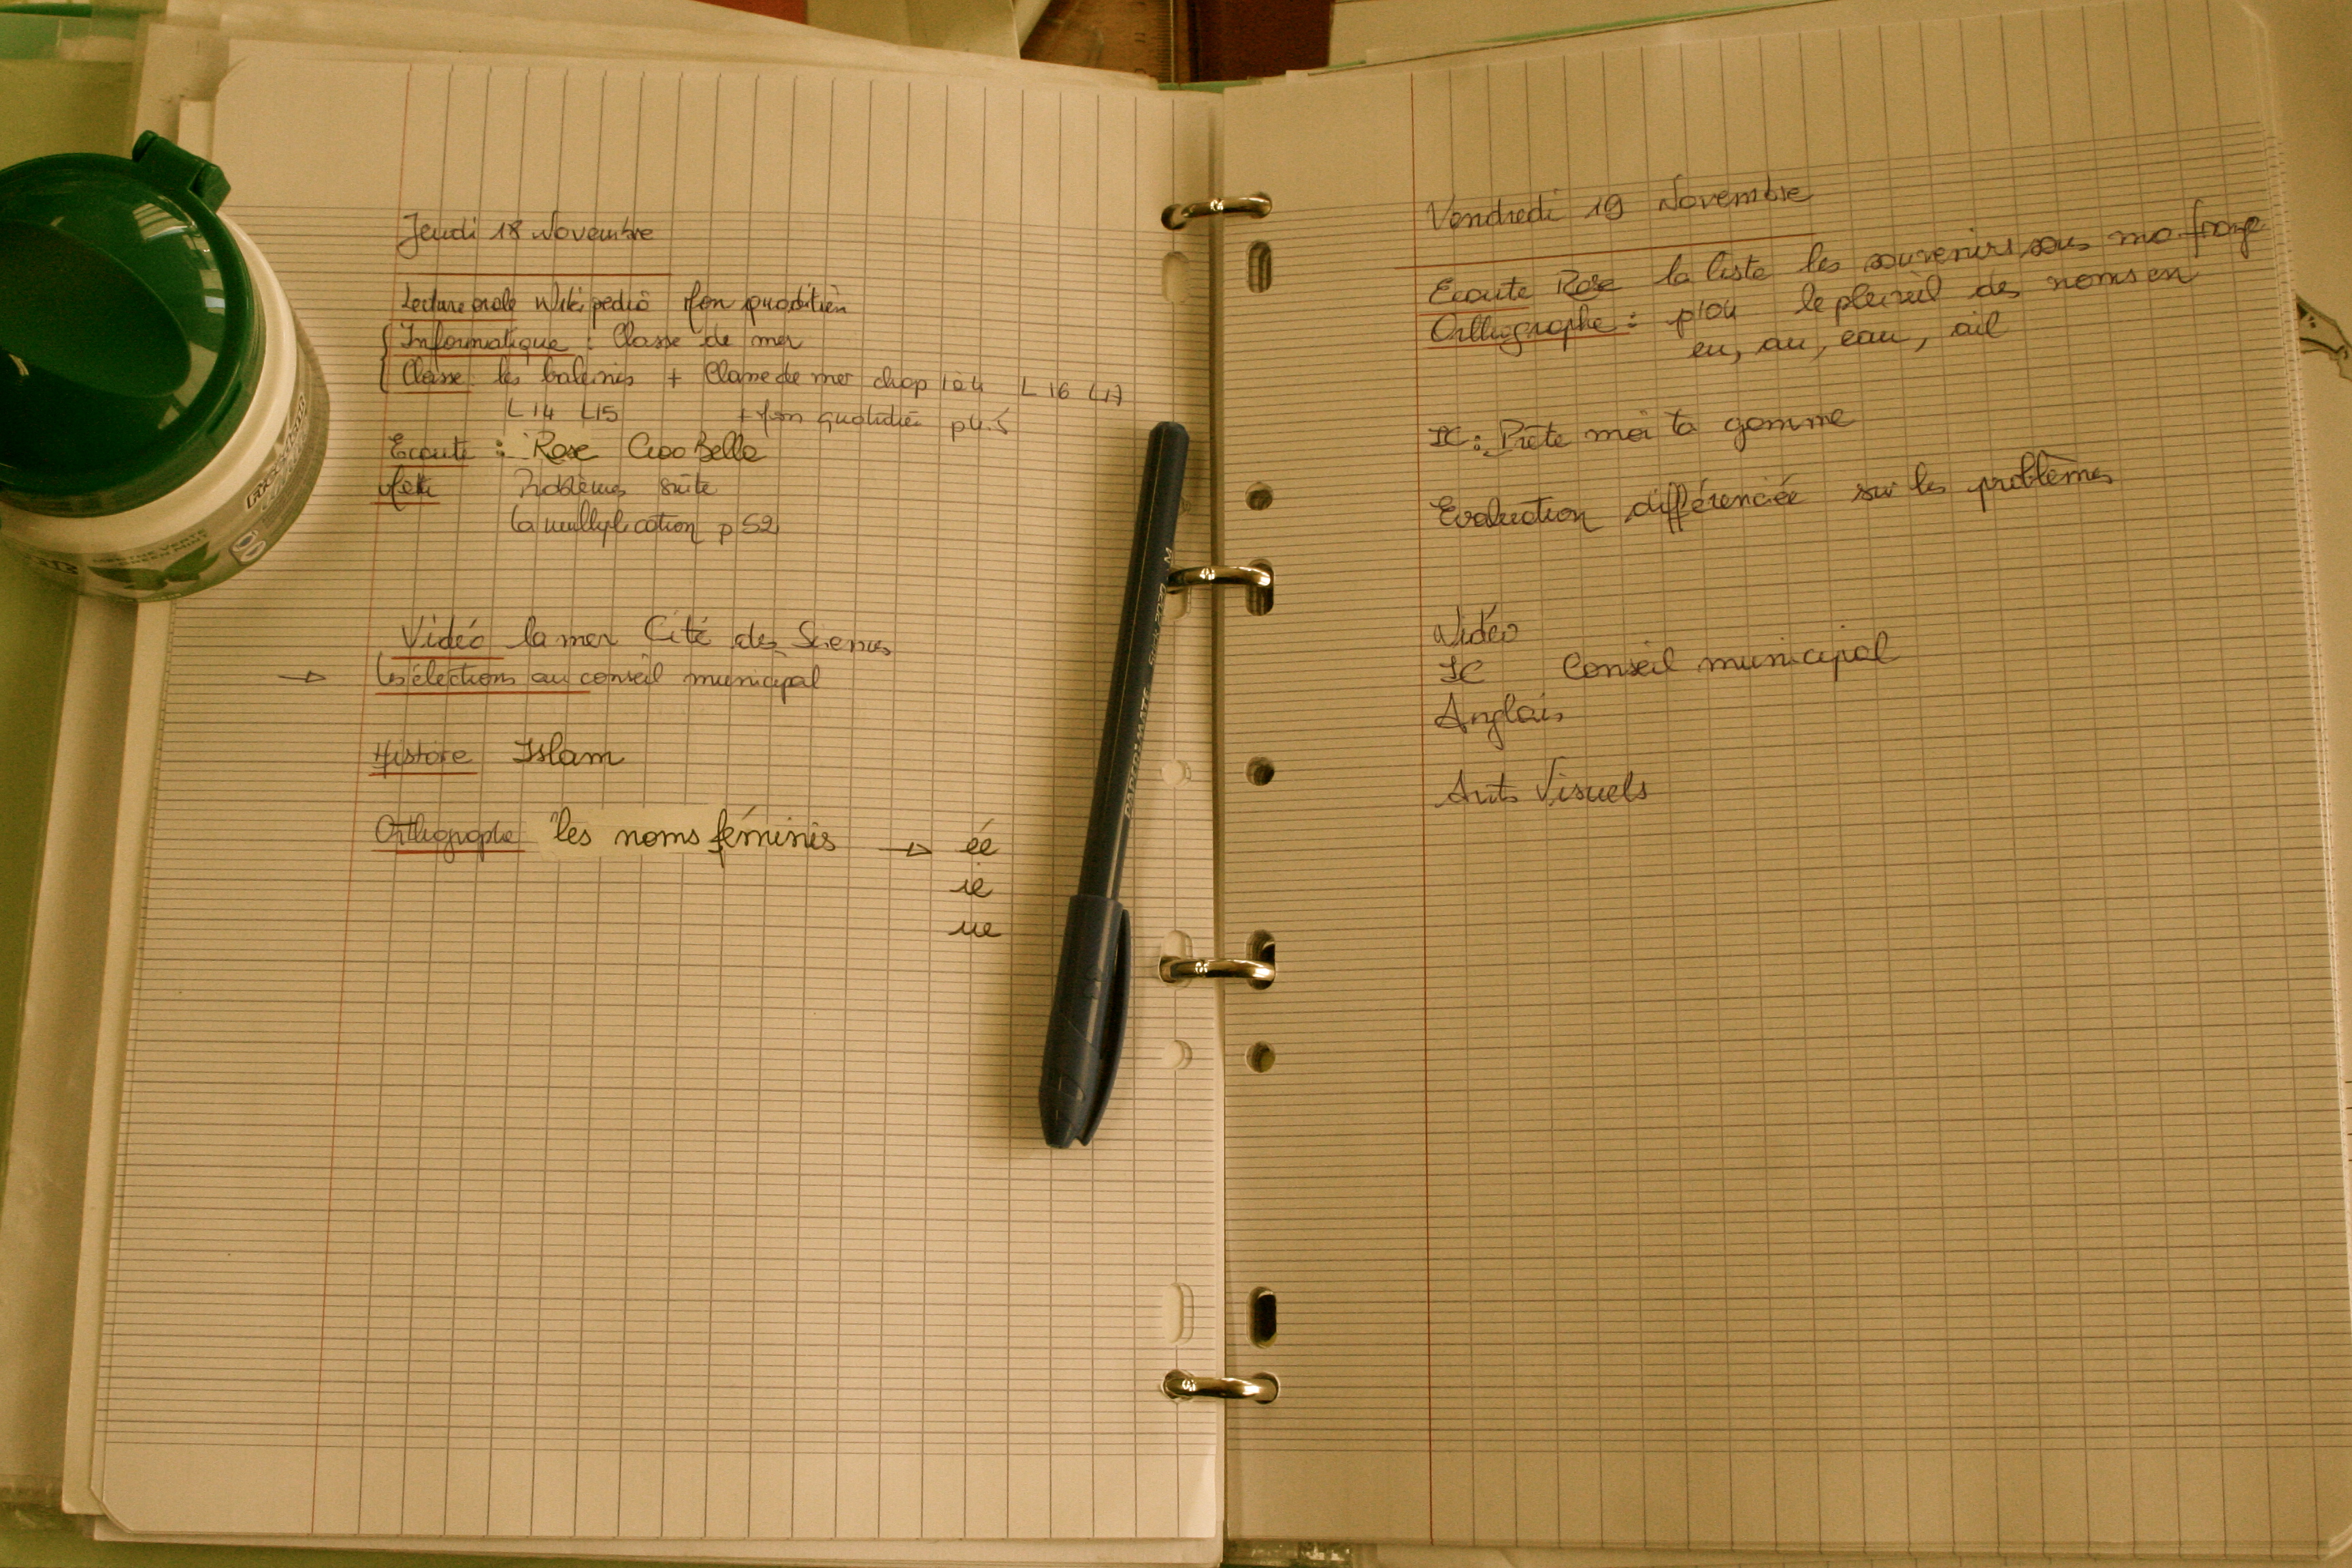 Jeudi 18 Novembre
Lecture orale Wikipédia Mon quotidien
Informatique : Classe de mer
Classe : les baleines + Classe de mer chap 1 à 4 L16 L17
L14 L15 + Mon quotidien p4.5
Ecoute : Rose Ciao Bella
Problèmes suite
la multiplication p 52
Vidéo la mer Cité des Sciences
→ les élections au conseil municipal
Histoire Islam
Orthographe les noms féminins → ée
ie
ue
Vendredi 19 Novembre
Ecoute Rose la liste les souvenirs sous ma frange
Orthographe : p104 le pluriel des noms en
eu, au, eau, ail
IC : Prête moi ta gomme
Evaluation différenciée sur les problèmes
Vidéo
IC Conseil municipal
Anglais
Arts Visuels
PAPERMATE
M